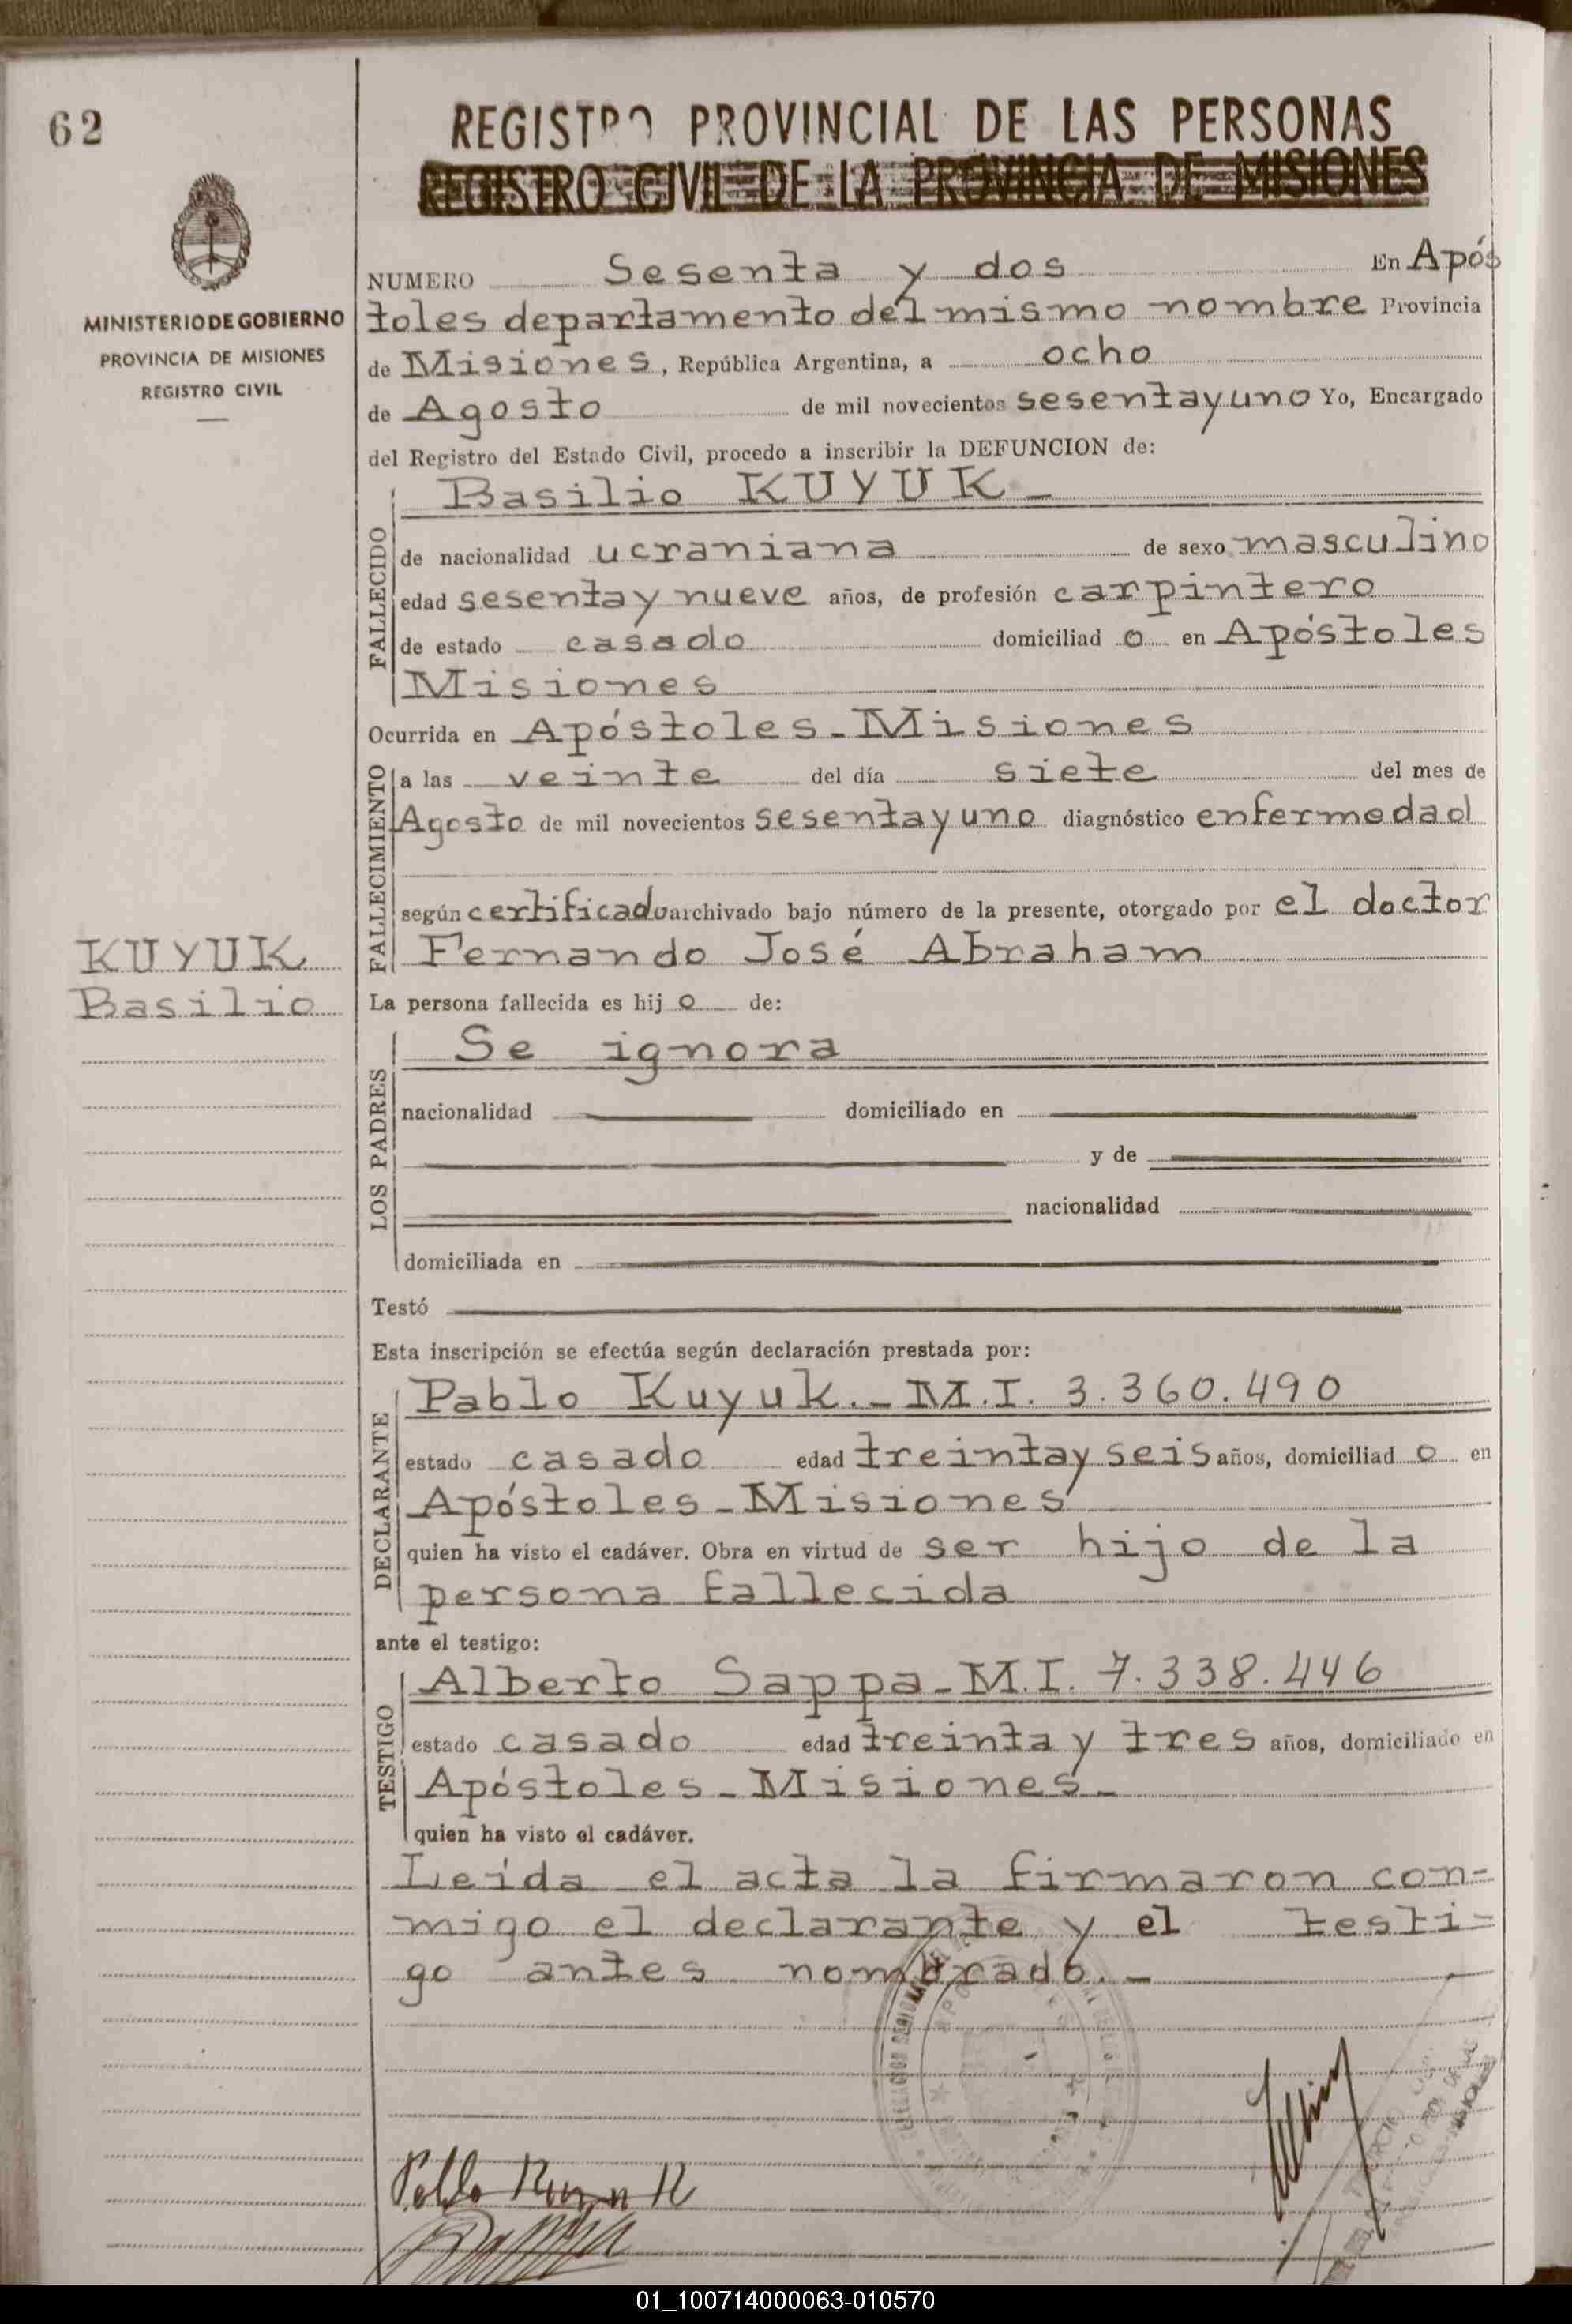 62
REGISTRO PROVINCIAL DE LAS PERSONAS
REGISTRO CIVIL DE LA PROVINCIA DE MISIONES
MINISTERIO DE GOBIERNO
PROVINCIA DE MISIONES
REGISTRO CIVIL
NUMERO Sesenta y dos En Após
toles departamento del mismo nombre Provincia
de Misiones, República Argentina, a ocho
de Agosto de mil novecientos sesentayuno Yo, Encargado
del Registro del Estado Civil, procedo a inscribir la DEFUNCION de:
FALLECIDO
Basilio KUYUK-
de nacionalidad ucraniana de sexo masculino
edad sesentay nueve años, de profesión carpintero
de estado casado domiciliad o en Apóstoles
Misiones
Ocurrida en Apóstoles-Misiones
FALLECIMIENTO
a las veinte del día siete del mes de
Agosto de mil novecientos sesentayuno diagnóstico enfermedad
según certificado archivado bajo número de la presente, otorgado por el doctor
Fernando José Abraham
KUYUK
Basilio
La persona fallecida es hij o de:
LOS PADRES
Se ignora
nacionalidad domiciliado en
y de
nacionalidad
domiciliada en
Testó
Esta inscripción se efectúa según declaración prestada por:
DECLARANTE
Pablo Kuyuk.-M.I. 3.360.490
estado casado edad treintay seis años, domiciliad o en
Apóstoles-Misiones
quien ha visto el cadáver. Obra en virtud de ser hijo de la
persona fallecida
ante el testigo:
TESTIGO
Alberto Sappa-M.I. 7.338.446
estado casado edad treinta y tres años, domiciliado en
Apóstoles-Misiones-
quien ha visto el cadáver.
Leída el acta la firmaron con=
migo el declarante y el testi=
go antes nombrado.-
Pablo Kuyuk
01_100714000063-010570